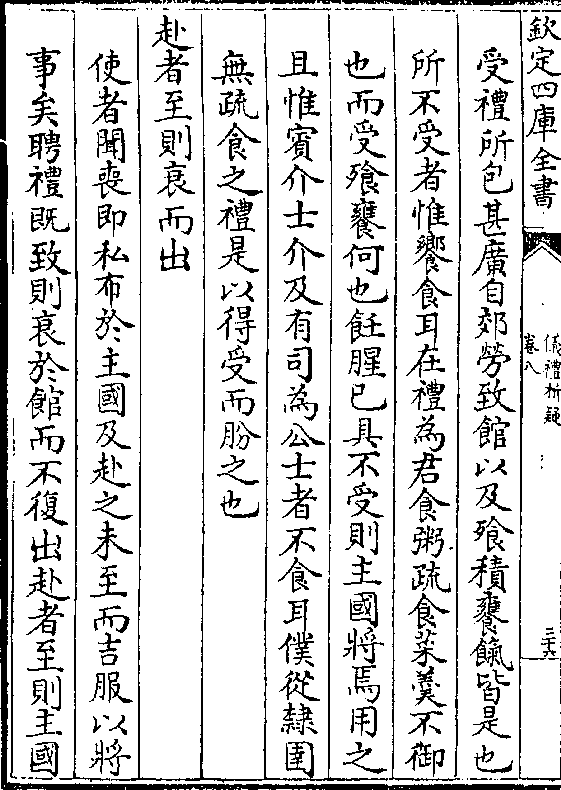 欽定四庫全書
儀禮析疑
卷八
三十六
受禮所包甚廣自郊勞致館以及飱積饔餼皆是也
所不受者惟饗食耳在禮為君食粥疏食菜羹不御
也而受飱饔何也飪腥已具不受則主國將焉用之
且惟賓介士介及有司為公士者不食耳僕從隸圉
無疏食之禮是以得受而朌之也
赴者至則衰而出
使者聞喪即私布於主國及赴之未至而吉服以將
事矣聘禮既致則衰於館而不復出赴者至則主國